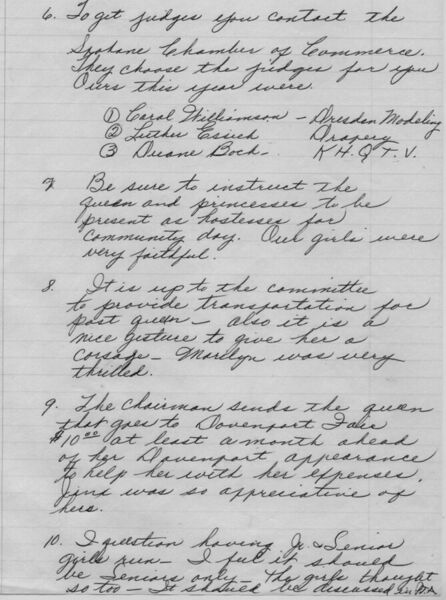 6. To get judges you contact the
Spokane Chamber of Commerce.
They choose the judges for you
Ours this year were
① Carol Williamson - Dresdan Modeling
② Luther Drapery
③ Duane Bock - K.H.Q T.V.
7. Be sure to instruct the
queen and princesses to be
present as hostesses for
community day. Our girls were
very faithful.
8. It is up to the committee
to provide transportation for
past queen - also it is a
nice gesture to give her a
corsage - Marilyn was very
thrilled.
9. The chairman sends the queen
that goes to Davenport Fair
$10.00 at least a month ahead
of her Davenport appearance
to help her with her expenses.
was so appreciative of
hers.
10. I question having Jr. & Senior
girls run - I feel it should
be Seniors only - The girls thought
so too - It should be discussed